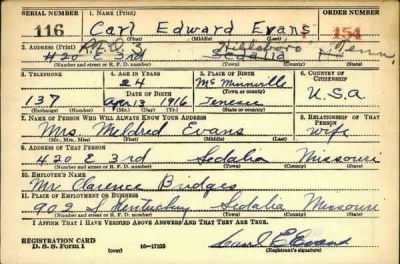 SERIAL NUMBER 1. NAME (Print) ORDER NUMBER
116 Carl Edward Evans 154
(First) (Middle) (Last)
2. ADDRESS (Print) R.F.D. 3 Hillsboro Tenn.
420 E 3rd Sedalia Mo.
(Number and street or R. F. D. number) (Town) (County) (State)
3. TELEPHONE 4. AGE IN YEARS 5. PLACE OF BIRTH 6. COUNTRY OF CITIZENSHIP
24 McMinnville
DATE OF BIRTH (Town or county)
137 Apr 13 1916 Tenesee U.S.a
(Exchange) (Number) (Mo.) (Day) (Yr.) (State or country)
7. NAME OF PERSON WHO WILL ALWAYS KNOW YOUR ADDRESS 8. RELATIONSHIP OF THAT PERSON
Mrs. Meldred Evans wife
(Mr., Mrs., Miss) (First) (Middle) (Last)
9. ADDRESS OF THAT PERSON
420 E 3rd Sedalia Missouri
(Number and street or R. F. D. number) (Town) (County) (State)
10. EMPLOYER'S NAME
Mr Clarence Bridges
11. PLACE OF EMPLOYMENT OR BUSINESS
902 S Kentucky Sedalia Missouri
(Number and street or R. F. D. number) (Town) (County) (State)
I AFFIRM THAT I HAVE VERIFIED ABOVE ANSWERS AND THAT THEY ARE TRUE.
REGISTRATION CARD
D. S. S. Form 1 (over) 16—17105 Carl E Evans
(Registrant's signature)